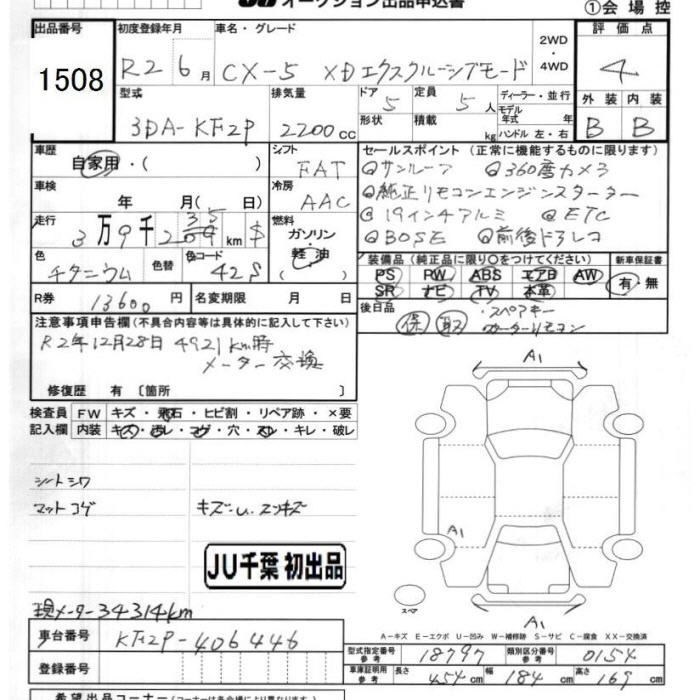 オークション出品申込書
①会場控
出品番号
1508
初度登録年月
R2 6月
車名・グレード
CX-5 XDエクスクルーシブモード
2WD
・
4WD
評価点
4
型式
3DA-KF2P
排気量
2200cc
ドア
5
形状
定員
5人
積載
kg
ディーラー・並行
モデル
年式 年
ハンドル 左・右
外装 内装
B B
車歴
自家用・( )
シフト
FAT
車検
年 月( 日)
冷房
AAC
走行
3万9千235km $
燃料
ガソリン
・
軽油
( )
色
チタニウム
色替
色コード
42S
R券
13600円
名変期限 月 日
セールスポイント (正常に機能するものに限ります)
◎サンルーフ ◎360度カメラ
◎純正リモコンエンジンスターター
◎19インチアルミ ◎ETC
◎BOSE ◎前後ドラレコ
装備品 (純正品に限り○をつけてください)
PS PW ABS エアB AW
SR ナビ TV 本革
新車保証書
有・無
後日品
保 取
・スペアキー
・スターターリモコン
注意事項申告欄 (不具合内容等は具体的に記入して下さい)
R2年12月28日 4921km時
メーター交換
修復歴 有 〔箇所 〕
検査員
記入欄
FW キズ・飛石・ヒビ割・リペア跡・×要
内装 キズ・汚レ・コゲ・穴・スレ・キレ・破レ
シートシワ
マットコゲ
キズ・U・スリキズ
JU千葉 初出品
現メーター34314km
A1
A1
A1
スペア
A-キズ E-エクボ U-凹み W-補修跡 S-サビ C-腐食 XX-交換済
車台番号
KF2P-406446
登録番号
型式指定番号
参考
18797
類別区分番号
参考
0154
車庫証明用
参考
長さ
454cm
幅
184cm
高さ
169cm
希望出品コーナー